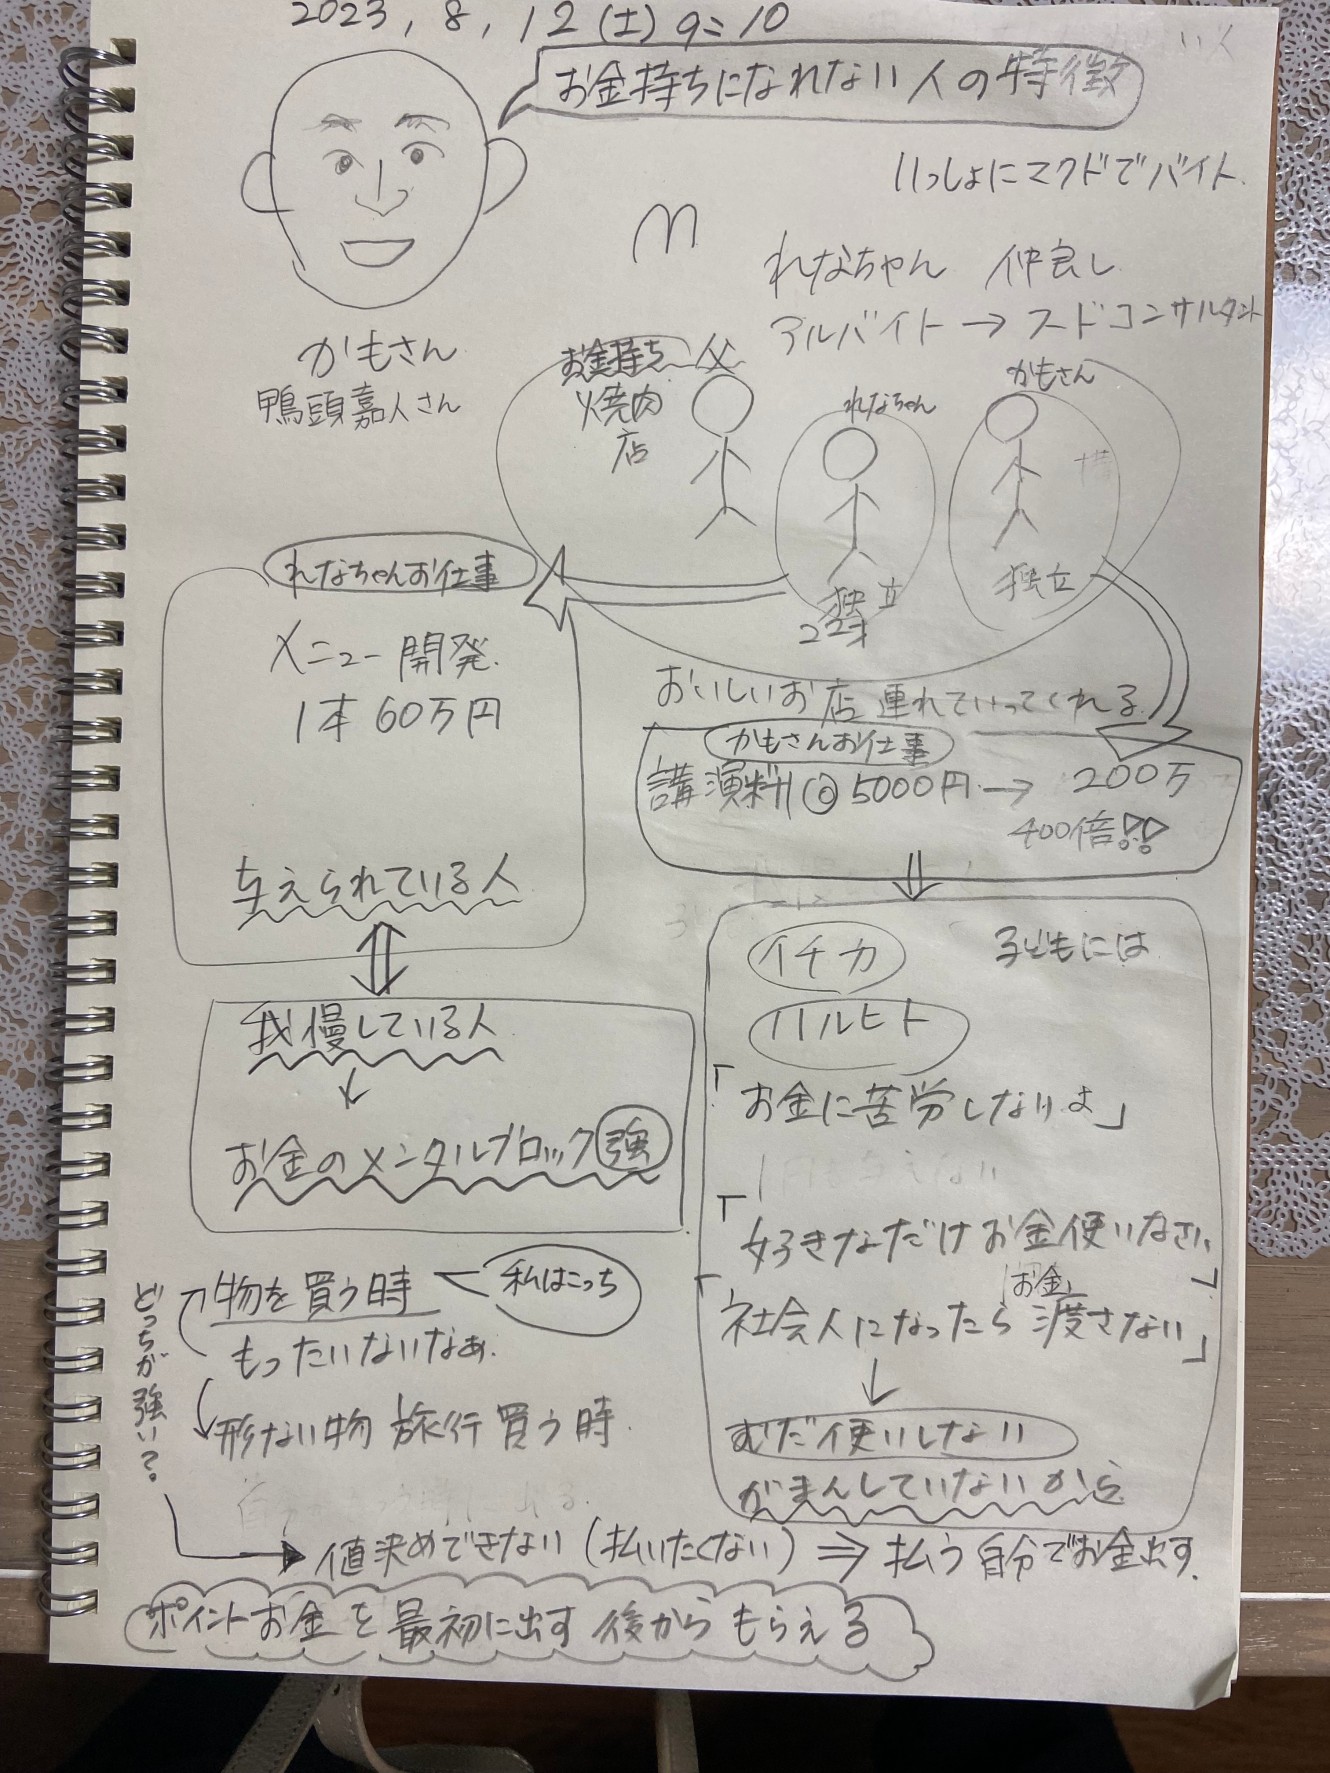 2023, 8, 12 (土) 9:10
お金持ちになれない人の特徴
いっしょにマクドでバイト
れなちゃん 仲良し
アルバイト → フードコンサルタント
かもさん
鴨頭嘉人さん
お金持ち 父
焼肉
店
れなちゃん
かもさん
独立
22才
独立
おいしいお店連れていってくれる
れなちゃんお仕事
メニュー開発
1本 60万円
与えられている人
かもさんお仕事
講演料 @ 5000円 → 200万
400倍!!
我慢している人
お金のメンタルブロック 強
イチカ
ハルヒト
子どもには
「お金に苦労しないよ」
「好きなだけお金使いなさい」
「社会人になったらお金渡さない」
むだ使いしない
がまんしていないから
どっちが強い?
物を買う時
私はこっち
もったいないなぁ
形ない物 旅行買う時
値決めできない (払いたくない) ⇒ 払う 自分でお金出す
ポイント お金を最初に出す 後からもらえる